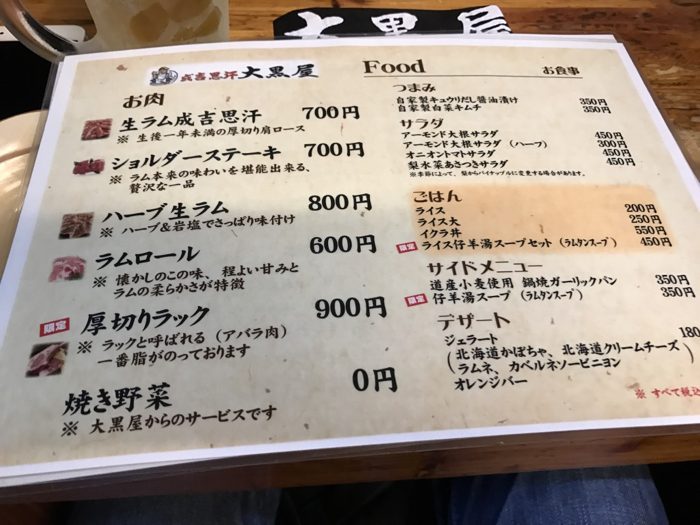 大黒屋
成吉思汗 大黒屋
Food
お食事
お肉
生ラム成吉思汗 700円
※ 生後一年未満の厚切り肩ロース
ショルダーステーキ 700円
※ ラム本来の味わいを堪能出来る、
贅沢な一品
ハーブ生ラム 800円
※ ハーブ&岩塩でさっぱり味付け
ラムロール 600円
※ 懐かしのこの味、程よい甘みと
ラムの柔らかさが特徴
限定 厚切りラック 900円
※ ラックと呼ばれる（アバラ肉）
一番脂がのっております
焼き野菜 0円
※ 大黒屋からのサービスです
つまみ
自家製キュウリだし醤油漬け 350円
自家製白菜キムチ 350円
サラダ
アーモンド大根サラダ 450円
アーモンド大根サラダ（ハーフ） 300円
オニオントマトサラダ 450円
梨水菜あさつきサラダ 450円
※季節によって、梨からパイナップルに変更する場合があります。
ごはん
ライス 200円
ライス大 250円
イクラ丼 550円
限定 ライス仔羊湯スープセット（ラムタンスープ） 450円
サイドメニュー
道産小麦使用 鍋焼ガーリックパン 350円
限定 仔羊湯スープ（ラムタンスープ） 350円
デザート
ジェラート 180
（北海道かぼちゃ、北海道クリームチーズ）
（ラムネ、カベルネソービニヨン
オレンジバー
※ すべて税込